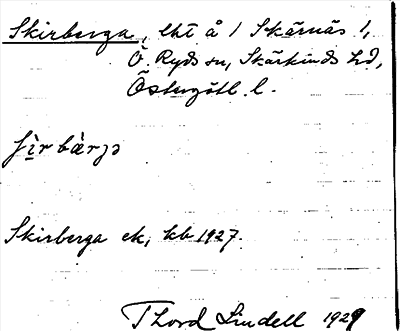 Skirberga, lht å 1 Skärnäs 1,
Ö. Ryds sn, Skärkinds hd,
Östergötl. l.
Skirberga ek, kb 1927.
Thord Lindell 1929